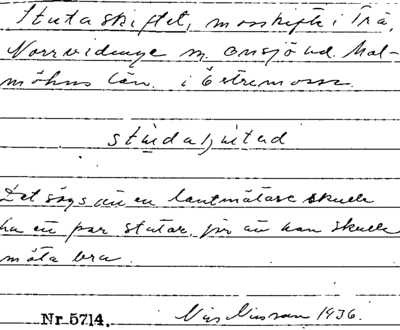 Stutaskiftet, mosskifte i Trä,
Norrvidinge sn. Onsjö hd. Mal-
möhus län. i Östremosse.
Det sägs att en lantmätare skulle
ha ett par stutar för att han skulle
mäta bra.
Nr 5714. Nils Nilsson 1936.